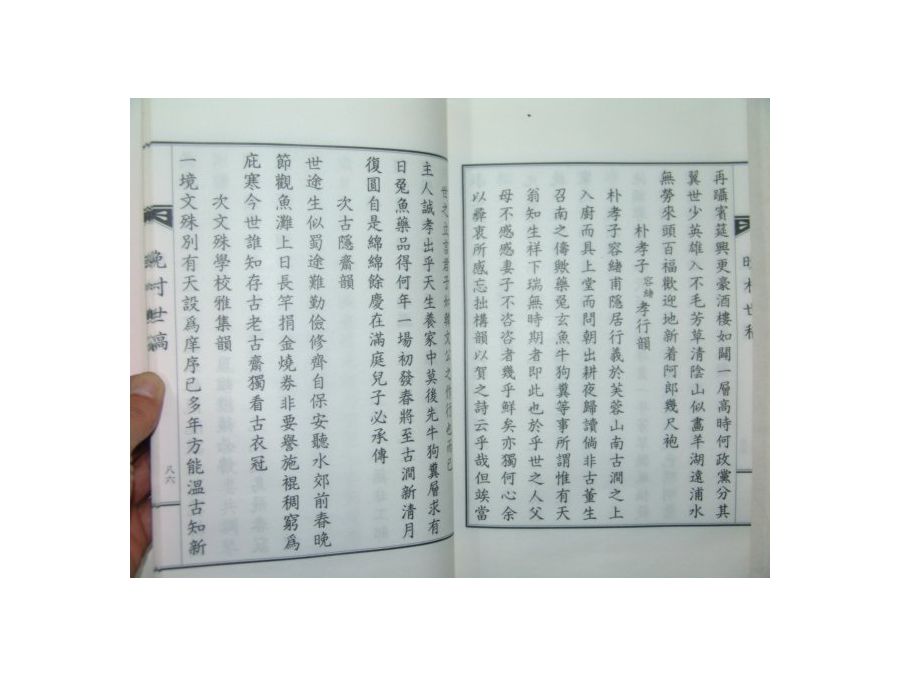 再躡賓筵興更豪酒樓如闢一層高時何政黨分其
翼世少英雄入不毛芳草清陰山似畫羊湖遠浦水
無勞來頭百福歡迎地新着阿郎幾尺袍
朴孝子容緖孝行韻
朴孝子容緖甫隱居行義於芙蓉山南古澗之上
入廚而具上堂而問朝出耕夜歸讀倘非古董生
召南之儔歟藥兎玄魚牛狗糞等事所謂惟有天
翁知生祥下瑞無時期者即此也於乎世之人父
母不感感妻子不咨咨者幾乎鮮矣亦獨何心余
以彛衷所感忘拙構韻以賀之詩云乎哉但竢當
世之立言君子如韓文公之
主人誠孝出乎天生養家中莫後先牛狗糞層求有
日兎魚藥品得何年一場初發春將至古澗新清月
復圓自是綿綿餘慶在滿庭兒子必承傳
次古隱齋韻
世途生似蜀途難勤儉修齊自保安聽水郊前春晚
節觀魚灘上日長竿捐金燒券非要譽施裩稠窮爲
庇寒今世誰知存古老古齋獨看古衣冠
次文殊學校雅集韻
一境文殊別有天設爲庠序已多年方能溫古知新
晩村世稿
八六